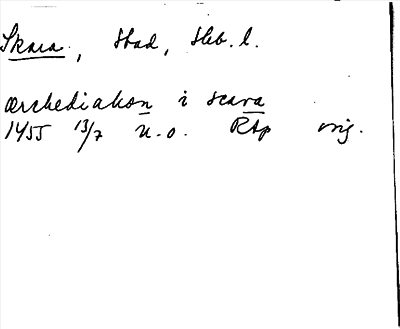 Skara, Stad, Skb. l.
ærchediakon i scara
1455 13/7 u.o. RAp orig.